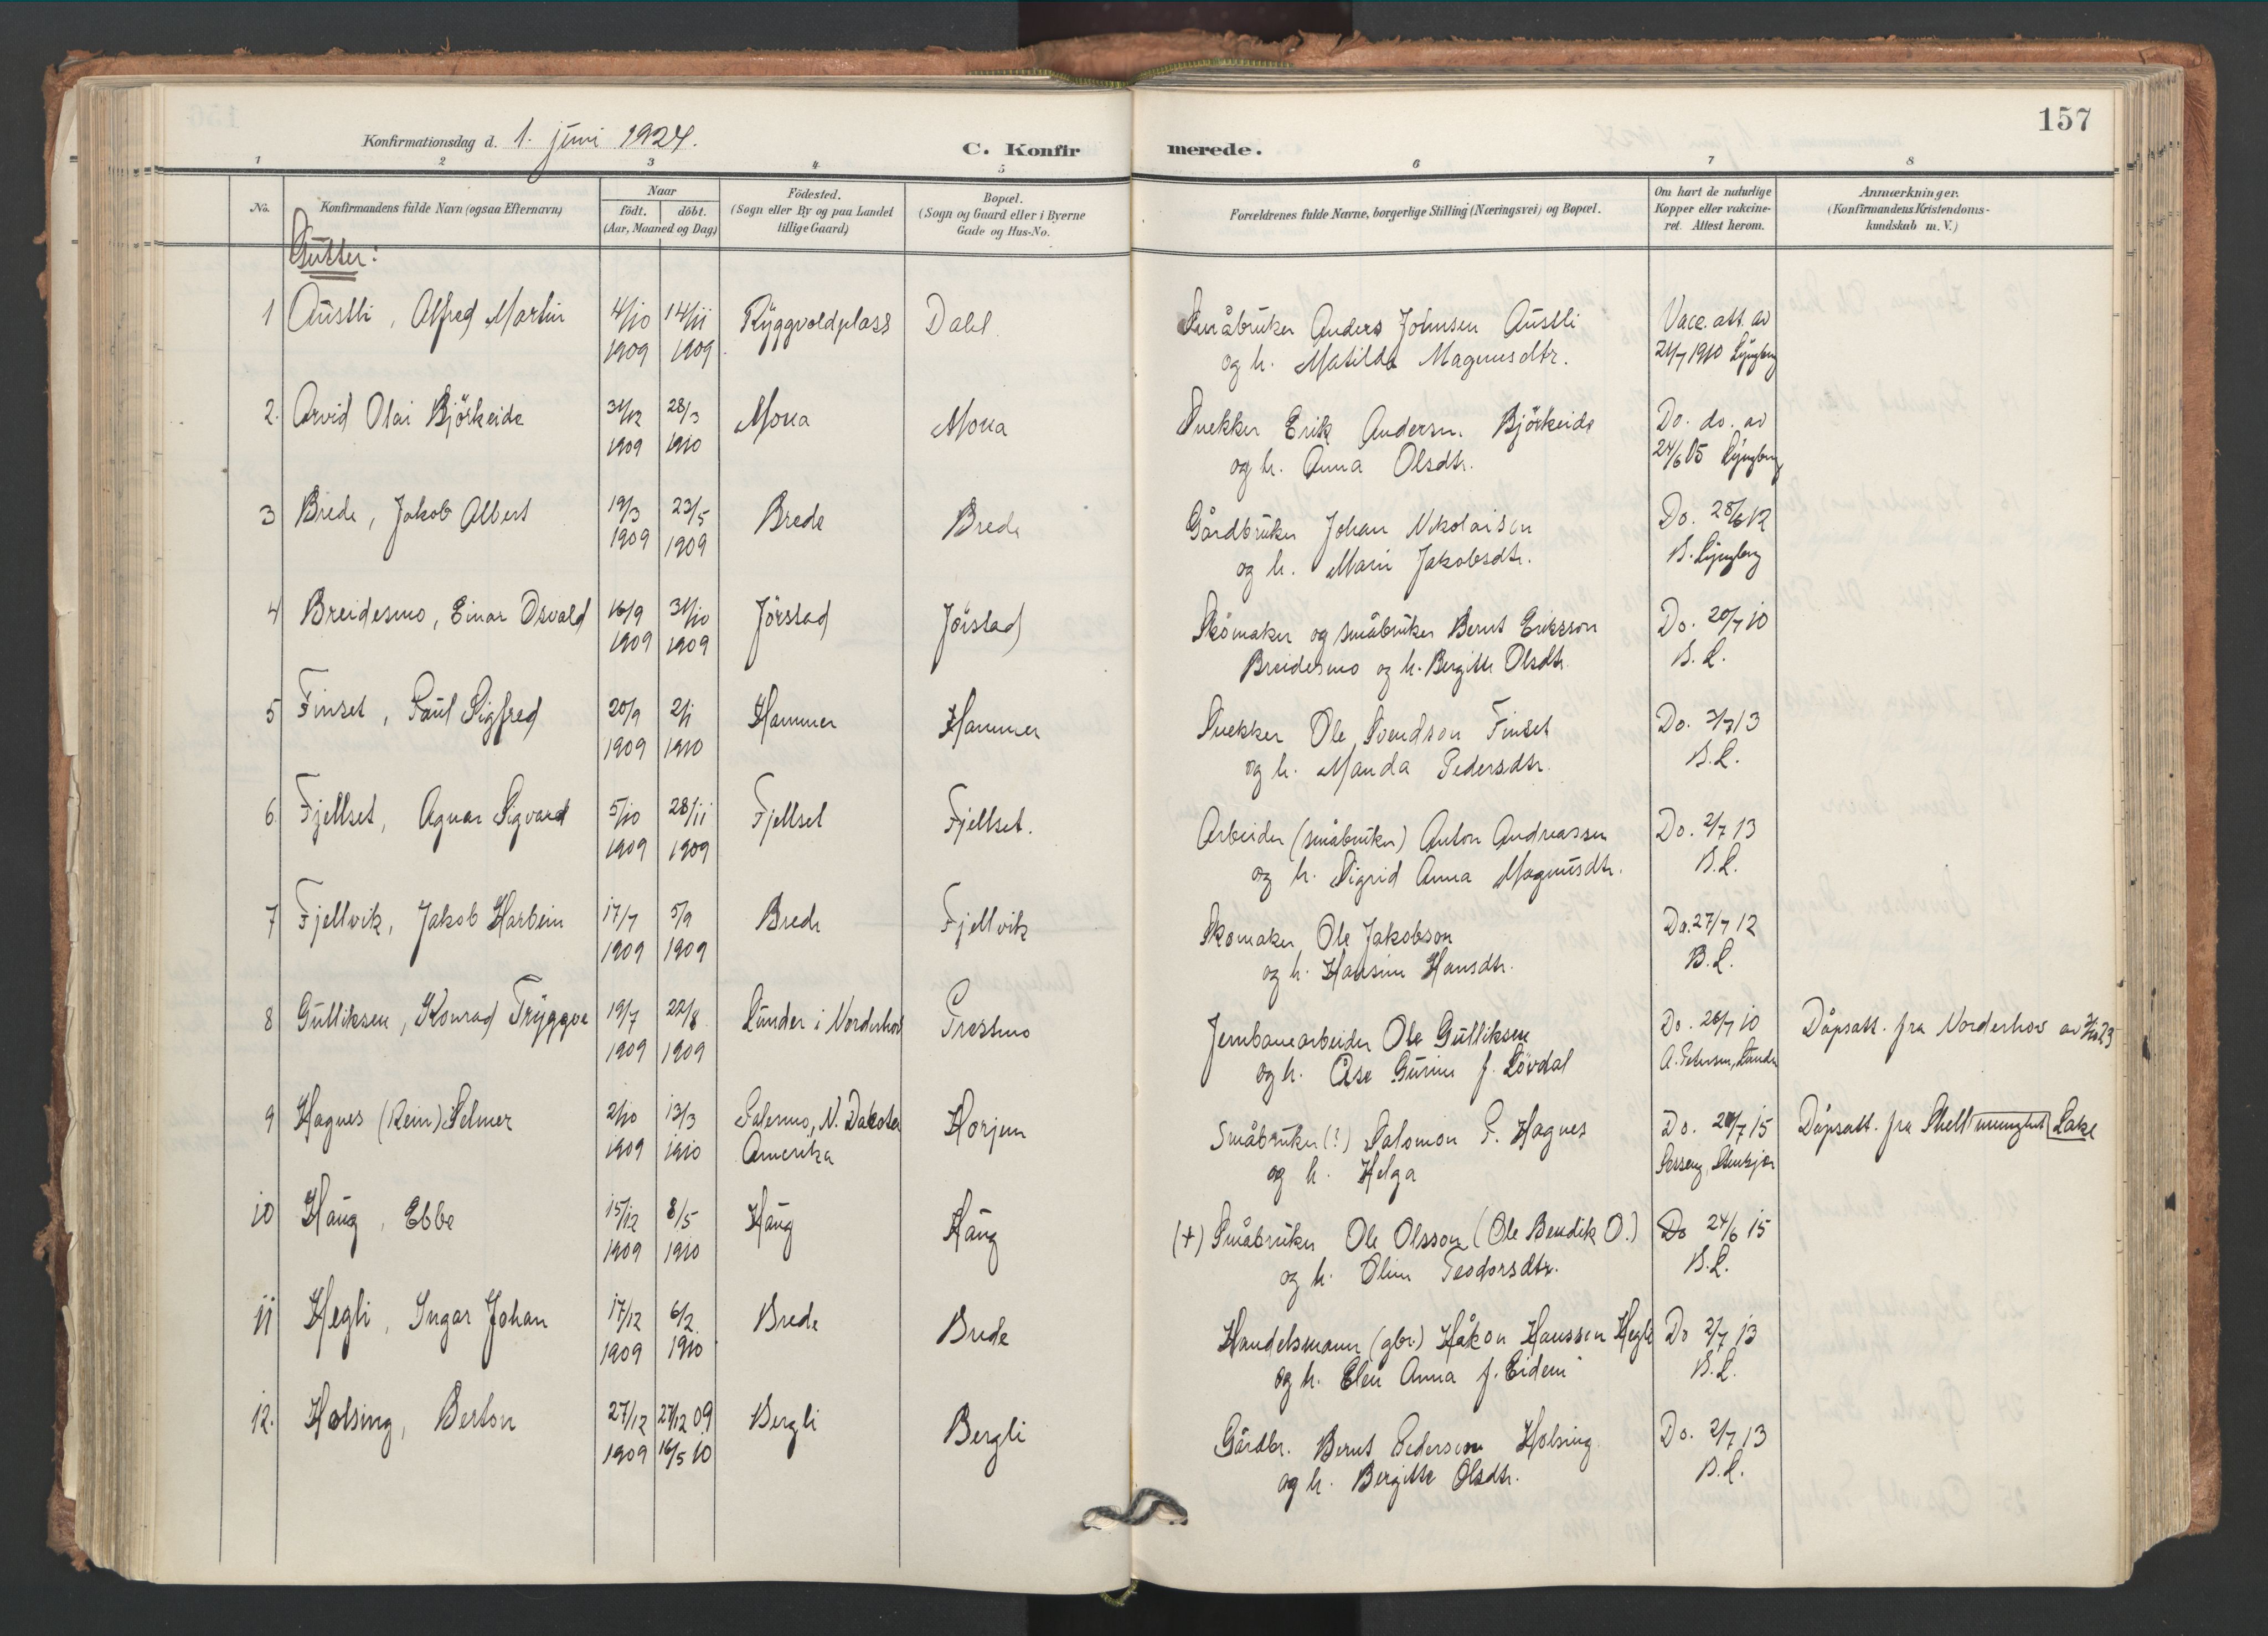 157
Konfirmationsdag d. 1. juni 1924.
C. Konfirmerede.
1 2 3 4 5 6 7 8
No.
Konfirmandens fulde Navn (ogsaa Efternavn)
Naar
födt. döbt.
(Aar, Maaned og Dag)
Födested.
(Sogn eller By og paa Landet
tillige Gaard)
Bopæl.
(Sogn og Gaard eller i Byerne
Gade og Hus-No.
Forældrenes fulde Navne, borgerlige Stilling (Næringsvei) og Bopæl.
Om havt de naturlige
Kopper eller vakcine-
ret. Attest herom.
Anmærkninger.
(Konfirmandens Kristendoms-
kundskab m. V.)
Gutter:
1 Austli, Alfred Martin 4/10 14/11 Ryggvoldplass Dahl. Småbruker Anders Johnsen Austli Vacc. att. av
1909 1909 og h. Matilde Magnusdtr. 21/7 1910 Lyngberg
2. Arvid Olai Björkeide 31/12 28/3 Moua Moua Snekker Erik Andersn. Björkeide Do. do. av
1909 1910 og h. Anna Olsdtr. 24/6 05 Lyngberg
3 Brede, Jakob Albert 19/3 23/5 Brede Brede Gårdbruker Johan Nikolaisen Do. 28/6 12
1909 1909 og h. Marie Jakobsdtr. B. Lyngberg
4 Breidesmo, Einar Osvald 16/9 31/10 Jörstad Jörstad Skomaker og småbruker Bernt Eriksson Do. 20/7 10
1909 1909 Breidesmo og h. Bergitte Olsdtr. B. L.
5 Finset, Paul Sigfred 20/9 2/1 Hammer Hammer Snekker Ole Svendson Finset Do. 2/7 13
1909 1910 og h. Manda Pedersdtr. B. L.
6 Fjellset, Agnar Sigvard 5/10 28/11 Fjellset Fjellset. Arbeider (småbruker) Anton Andreassen Do. 2/7 13
1909 1909 og h. Sigrid Anna Magnusdtr. B. L.
7 Fjellvik, Jakob Harbein 17/7 5/9 Brede Fjellvik Skomaker Ole Jakobson Do. 27/7 12
1909 1909 og h. Hansine Hansdtr. B. L.
8 Gulliksen, Konrad Tryggve 19/7 22/8 Lunder i Norderhov Prestmo Jernbanearbeider Ole Gulliksen Do. 26/7 10 Dåpsatt. fra Norderhov av
1909 1909 og h. Åse Gurine f. Lövdal A. Petersen, Lunder
9 Hagnes (Rein) Selmer 2/10 13/3 Palermo, N. Dakota Horjem Småbruker (?) Salomon P. Hagnes Do. 7 15 Dåpsatt. fra Shell Lake
1909 1910 Amerika og h. Helga Stenkjær
10 Haug, Ebbe 15/12 8/5 Haug Haug (+) Småbruker Ole Olsson (Ole Bendik O.) Do 24/6 15
1909 1910 og h. Oline Teodorsdtr. B. L.
11 Hegli, Ingar Johan 17/12 6/2 Brede Brede Handelsmann (gbr.) Håkon Hanssen Hegli Do 2/7 13
1909 1910 og h. Elen Anna f. Eidem B. L.
12. Holsing, Berton 27/12 27/12 09 Bergli Bergli Gårdbr. Bernt Pedersen Holsing Do. 2/7 13
1909 16/5 10 og h. Bergitte Olsdtr. B. L.